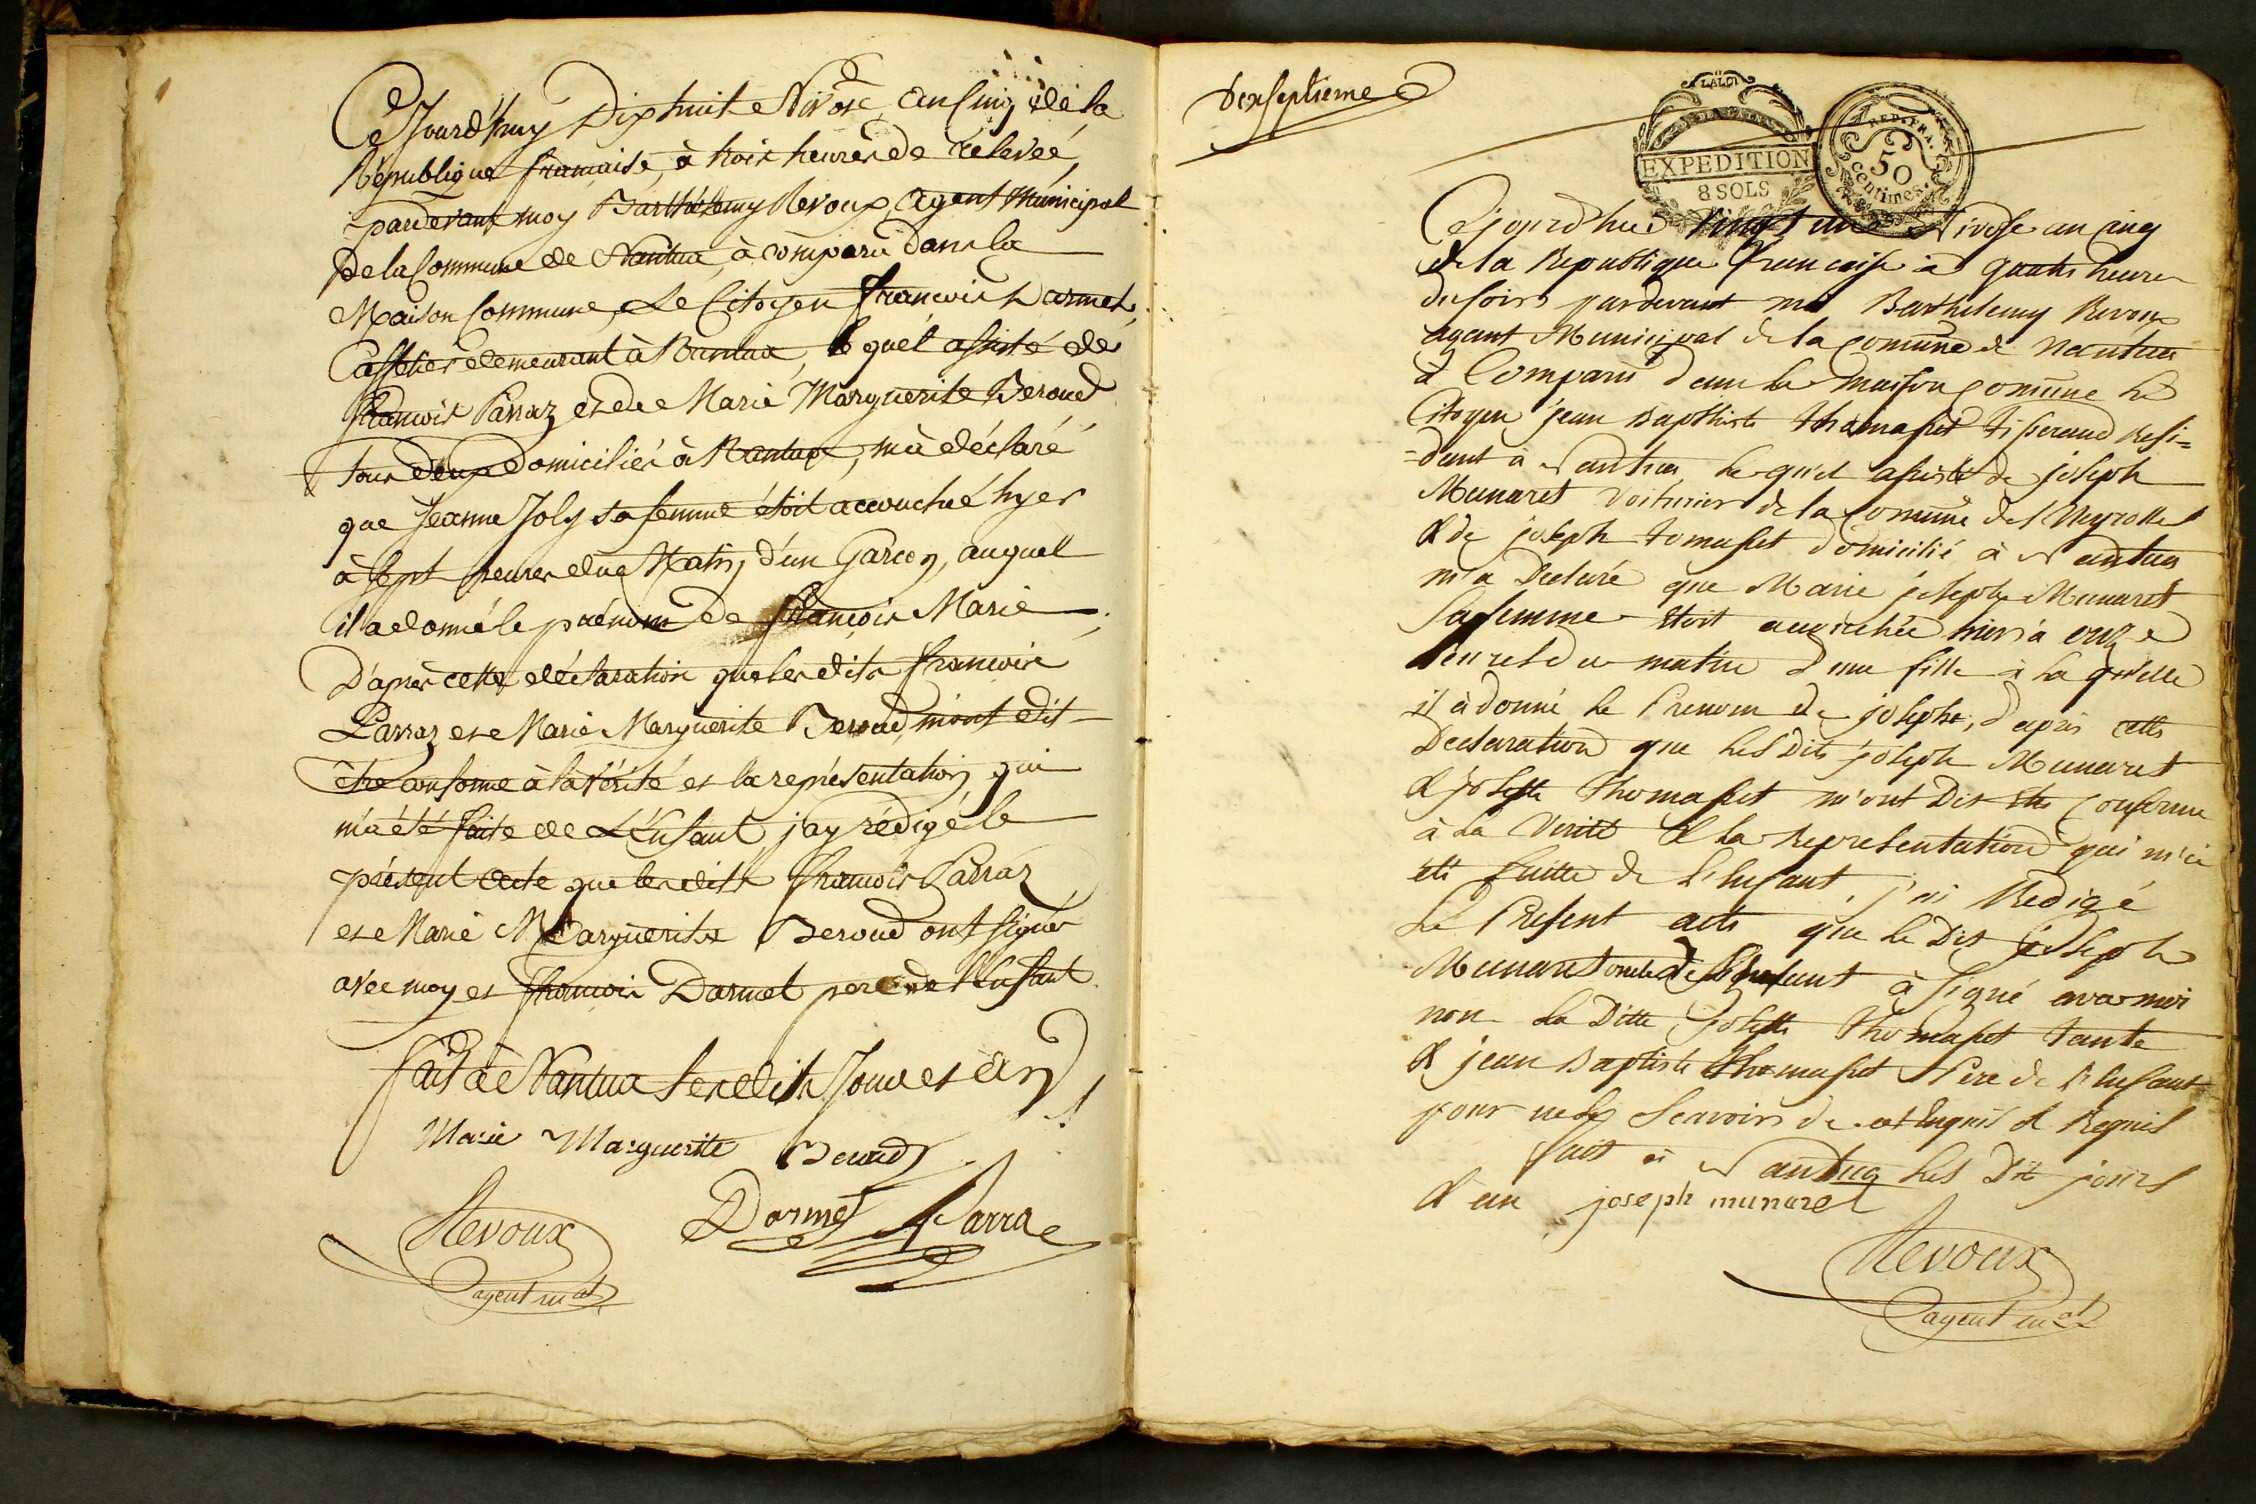 Ce Jourd'huy Dix huit Nivose an Cinq de la
République française, à trois heures de relevée,
pardevant moy Barthélemy Revoux, agent Municipal
de la Commune de Nantua, à comparu dans la
Maison Commune, Le Citoyen françois Darmet,
Caffetier demeurant à Nantua, le quel assisté de
françois Parraz et de Marie Marguerite Beroud
Tous deux Domiciliés à Nantua, m'à déclaré
que Jeanne Joly sa femme étoit accouchée hyer
à Sept heures du Matin, d'un Garcon, auquel
il a donné le prénom de françois Marie,
D'après cette déclaration que les dits francois
Parraz et Marie Marguerite Beroud, m'ont dit
être conforme à la vérité et la représentation, qui
m'a été faite de L'Enfant, j'ay rédigé le
présent acte que les dits francois Parraz
et Marie Marguerite Beroud ont signés
avec moy et françois Darmet pere de l'Enfant.
fait à Nantua les dits Jour et an
Marie Marguerite Beroud
Revoux Darmet Parraz
agent m.al
Dixseptieme
LA LOI
EXPEDITION
8 SOLS
REP. FRA.
50
centimes.
Cejourd'hui vingt un Nivose an cinq
de la Republique francaise à quatre heures
du soir pardevant moi Barthelemy Revoux
agent Municipal de la comune de Nantua
à Comparu dans la maison comune le
Citoyen jean Baptiste thomasset tisserand Resi=
=dant à Nantua, le quel assisté de joseph
Munaret voiturier de la comune des Neyrolles
& de joseph tomasset domicilié à Nantua
m'a Declaré que Marie josephe Munaret
sa femme etoit accouchée hier à onze
heures du matin d'une fille à la quelle
il à donné le Prenom de josephe, d'après cette
Declaration que les Dits joseph Munaret
& josephte thomasset m'ont Dit etre conforme
à la Verité & la Representation qui m'a
eté faitte de l'enfant, j'ai Redigé
le Present acte que le Dit joseph
Munaret oncle de l'enfant à signé avec moi
non la Ditte josephte thomasset tante
& jean Baptiste thomasset Pere de l'enfant
pour ne scavoir de ce Enquis & Requis
fait à Nantua les Dit jours
& an joseph munaret
Revoux
agent m.al